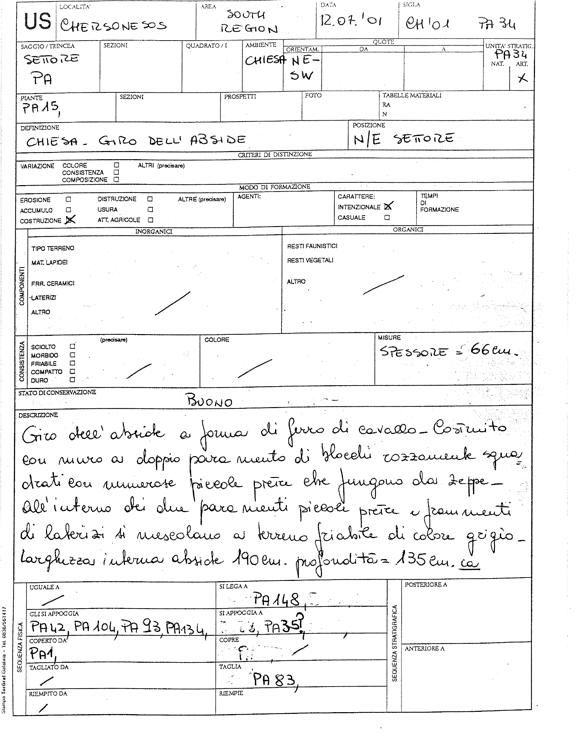 US
LOCALITA'
CHERSONESOS
AREA
SOUTH
REGION
DATA
12.07.'01
SIGLA
CH'01 PA 34
SAGGIO / TRINCEA
SETTORE
PA
SEZIONI
QUADRATO / I
AMBIENTE
CHIESA
ORIENTAM.
NE-
SW
QUOTE
DA
A
UNITA' STRATIG.
PA34
NAT. ART.
X
PIANTE
PA15,
SEZIONI
PROSPETTI
FOTO
TABELLE MATERIALI
RA
N
DEFINIZIONE
CHIESA - GIRO DELL'ABSIDE
POSIZIONE
N/E SETTORE
CRITERI DI DISTINZIONE
VARIAZIONE COLORE ☐ ALTRI (precisare)
CONSISTENZA ☐
COMPOSIZIONE ☐
MODO DI FORMAZIONE
EROSIONE ☐ DISTRUZIONE ☐ ALTRE (precisare)
ACCUMULO ☐ USURA ☐
COSTRUZIONE ☒ ATT. AGRICOLE ☐
AGENTI:
CARATTERE:
INTENZIONALE ☒
CASUALE ☐
TEMPI
DI
FORMAZIONE
COMPONENTI
INORGANICI
TIPO TERRENO
MAT. LAPIDEI
FRR. CERAMICI
LATERIZI
ALTRO
ORGANICI
RESTI FAUNISTICI
RESTI VEGETALI
ALTRO
CONSISTENZA
(precisare)
SCIOLTO ☐
MORBIDO ☐
FRIABILE ☐
COMPATTO ☐
DURO ☐
COLORE
MISURE
SPESSORE = 66 cm.
STATO DI CONSERVAZIONE
BUONO
DESCRIZIONE
Giro dell'abside a forma di ferro di cavallo - Costruito
con muro a doppio paramento di blocchi rozzamente squa
drati con numerose piccole pietre che fungono da zeppe -
all'interno dei due paramenti piccole pietre e frammenti
di laterizi si mescolano a terreno friabile di colore grigio -
Larghezza interna abside 190 cm. profondità = 135 cm. ca
SEQUENZA FISICA
UGUALE A
SI LEGA A
PA148,
GLI SI APPOGGIA
PA42, PA104, PA93, PA134,
SI APPOGGIA A
PA35?
COPERTO DA
PA1,
COPRE
TAGLIATO DA
TAGLIA
PA83,
RIEMPITO DA
RIEMPIE
SEQUENZA STRATIGRAFICA
POSTERIORE A
ANTERIORE A